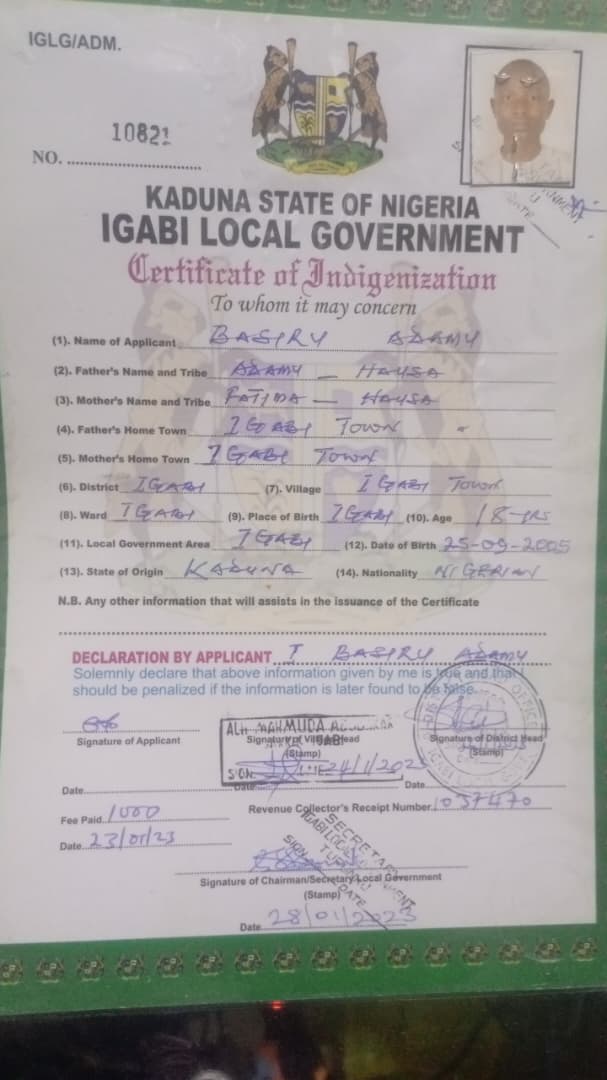 IGLG/ADM.
10821
NO. ..............................
KADUNA STATE OF NIGERIA
IGABI LOCAL GOVERNMENT
Certificate of Indigenization
To whom it may concern
(1). Name of Applicant BASIRU ADAMU
(2). Father's Name and Tribe ADAMU — HAUSA
(3). Mother's Name and Tribe FATIMA — HAUSA
(4). Father's Home Town IGABI TOWN
(5). Mother's Home Town IGABI TOWN
(6). District IGABI (7). Village IGABI TOWN
(8). Ward IGABI (9). Place of Birth IGABI (10). Age 18-YRS
(11). Local Government Area IGABI (12). Date of Birth 25-09-2005
(13). State of Origin KADUNA (14). Nationality NIGERIAN
N.B. Any other information that will assists in the issuance of the Certificate
DECLARATION BY APPLICANT I BASIRU ADAMU
Solemnly declare that above information given by me is true and that
should be penalized if the information is later found to be false.
ALH MAHMUDA
Signature of Applicant Signature of Village Head Signature of District Head
(Stamp) [Stamp]
SIGN
Date Date Date
Fee Paid 1000 Revenue Collector's Receipt Number 1037470
Date 23/01/23
SECRETARY
IGABI LOCAL GOVERNMENT
SIGN
DATE
Signature of Chairman/Secretary Local Government
(Stamp)
Date 28/01/2023